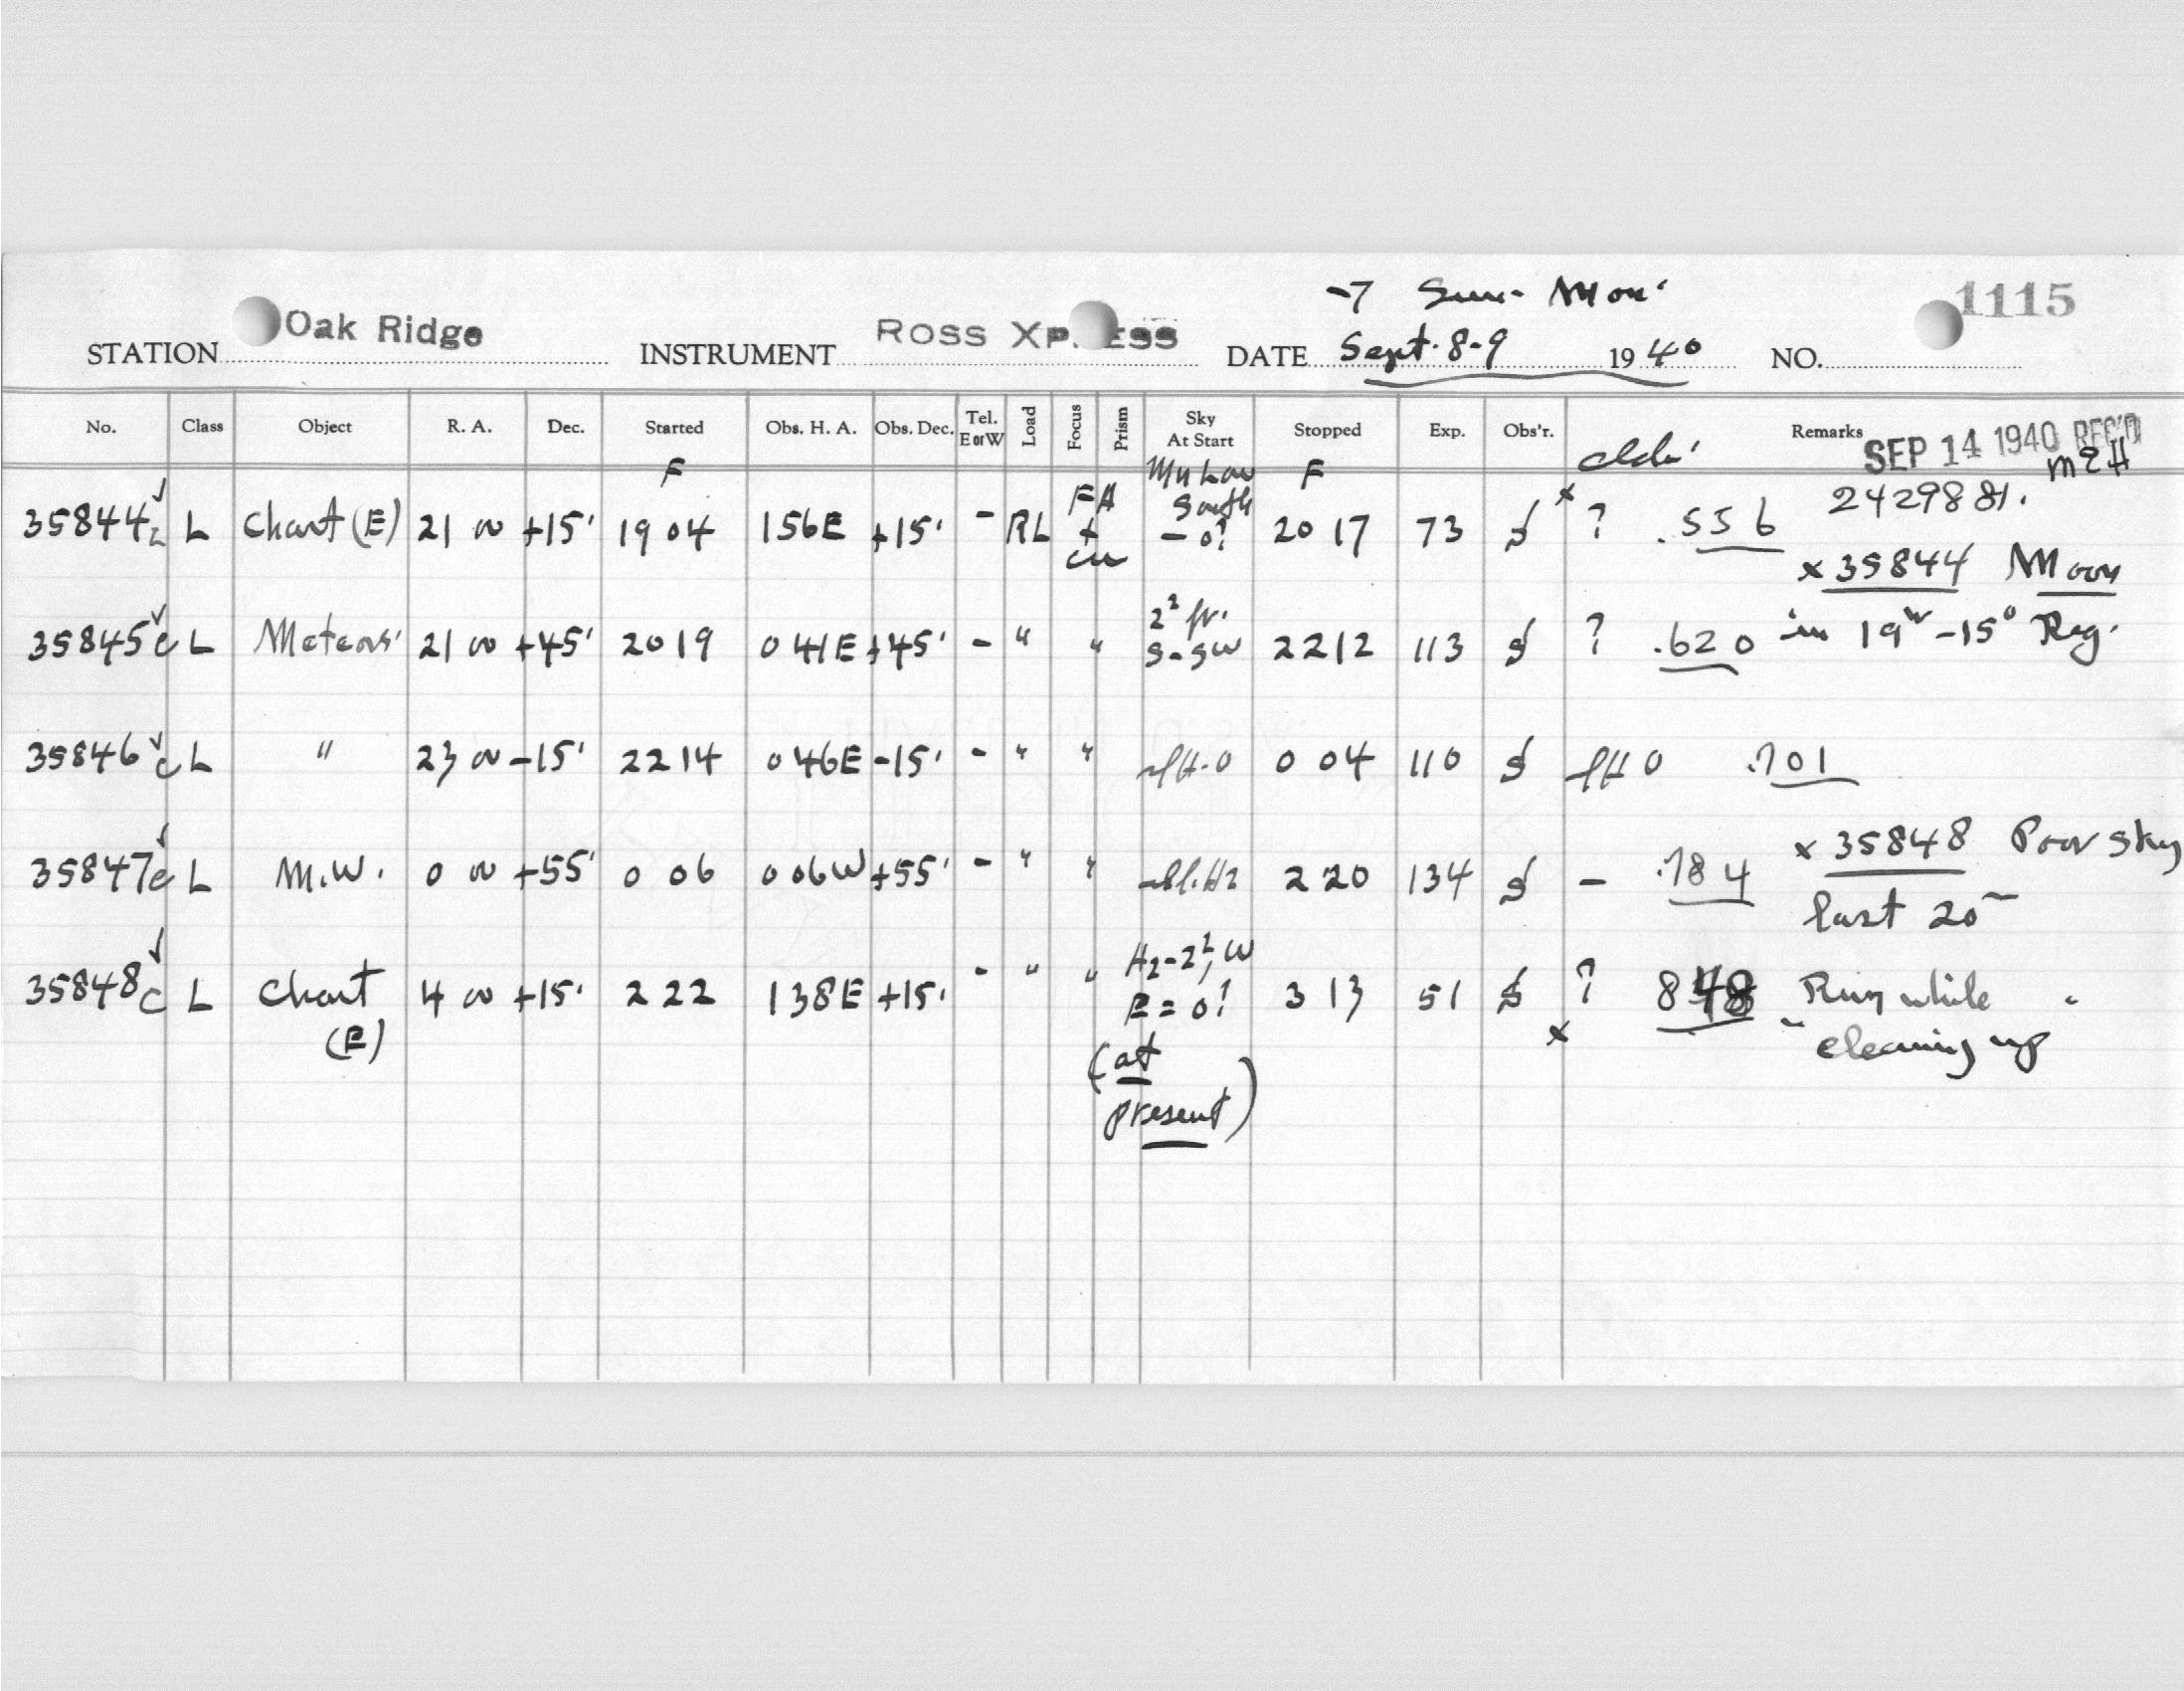 -7 Sun- Mon'
1115
STATION Oak Ridge INSTRUMENT ROSS XPRESS DATE Sept. 8-9 1940 NO.
No. Class Object R. A. Dec. Started Obs. H. A. Obs. Dec. Tel. E or W Load Focus Prism Sky At Start Stopped Exp. Obs'r. Remarks SEP 14 1940 REC'D
F F
35844 L Chart (E) 21 00 +15' 19 04 156E +15' - RL FA South -0? 20 17 73 S x ? .556 2429881.
x 35844 Moon
35845 c L Meteors' 21 00 +45' 20 19 0 41E +45' - " " S-SW 22 12 113 S ? .620 in 19 -15° Reg.
35846 c L " 23 00 -15' 22 14 0 46E -15' - " " 0 04 110 S .701
35847 c L M.W. 0 00 +55' 0 06 0 06W +55' - " " 2 20 134 S - .784 x 35848 Poor sky
last 20
35848 c L Chart 4 00 +15' 2 22 138E +15' - " " E = 0? 3 13 51 S ? 848 Run while
(E) x cleaning up
(at
present)